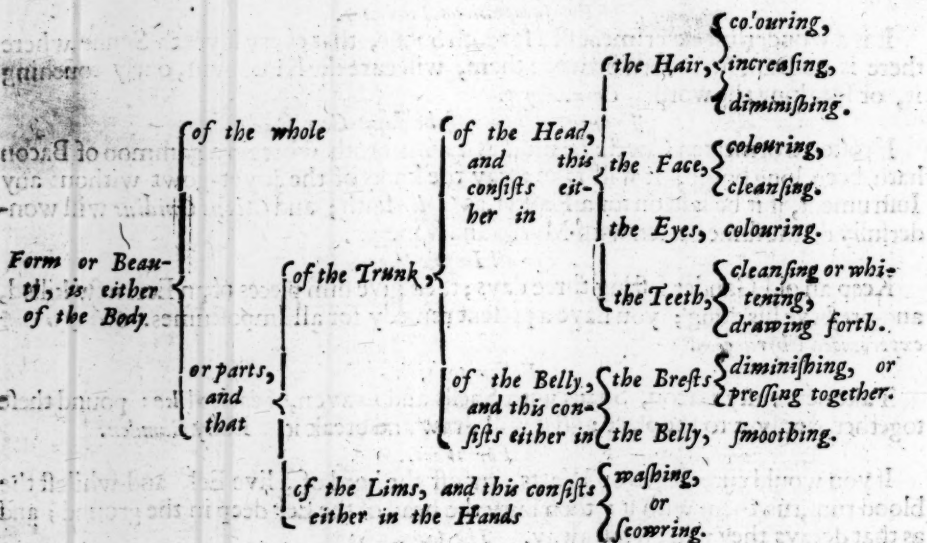 Form or Beau-
ty, is either
of the Body
of the whole
or parts,
and
that
of the Trunk,
of the Head,
and this
conſiſts eit-
her in
the Hair,
colouring,
increaſing,
diminiſhing.
the Face,
colouring,
cleanſing.
the Eyes, colouring.
the Teeth,
cleanſing or whi-
tening,
drawing forth.
of the Belly,
and this con-
ſiſts either in
the Breſts
diminiſhing, or
preſſing together.
the Belly, ſmoothing.
of the Lims, and this conſiſts
either in the Hands
waſhing,
or
ſcowring.